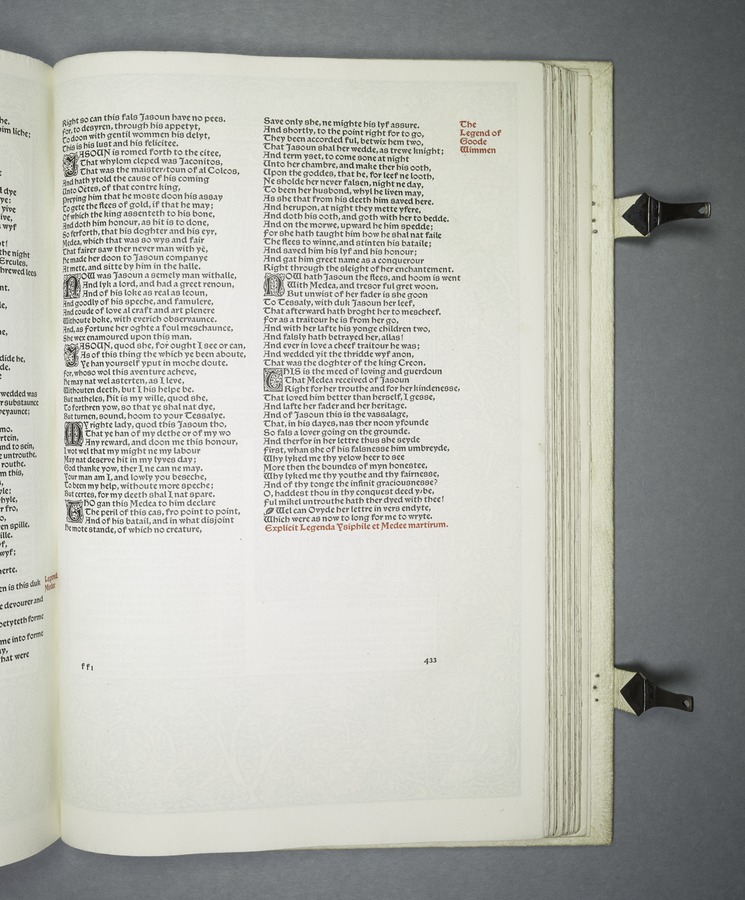 he.
him liche;
dye
ye:
yive
ive,
wy,
ot!
the night
Ercules,
hrewed lees
nt.
le,
ne,
dide he,
de.
wedded was
r substaunce
veyaunce;
mo.
rtein,
nd to sein,
e untrouthe.
routhe.
m this,
yle;
hyle,
r fro,
o,
en spille,
ille.
f,
wyf;
herte.
en is this duk
e devourer and
petyteth forme
me into forme
y,
hat were
Legend
Medee
Right so can this fals Jasoun have no pees.
For, to desyren, through his appetyt,
To doon with gentil wommen his delyt,
This is his lust and his felicitee.
JASOUN is romed forth to the citee,
That whylom cleped was Jaconitos,
That was the maister-toun of al Colcos,
And hath ytold the cause of his coming
Unto Oëtes, of that contre king,
Preying him that he moste doon his assay
To gete the flees of gold, if that he may;
Of which the king assenteth to his bone,
And doth him honour, as hit is to done,
So ferforth, that his doghter and his eyr,
Medea, which that was so wys and fair
That fairer saw ther never man with yë,
He made her doon to Jasoun companye
At mete, and sitte by him in the halle.
NOW was Jasoun a semely man withalle,
And lyk a lord, and had a greet renoun,
And of his loke as real as leoun,
And goodly of his speche, and famulere,
And coude of love al craft and art plenere
Withoute boke, with everich observaunce.
And, as fortune her oghte a foul meschaunce,
She wex enamoured upon this man.
JASOUN, quod she, for ought I see or can,
As of this thing the which ye been aboute,
Ye han yourself yput in moche doute.
For, whoso wol this aventure acheve,
He may nat wel asterten, as I leve,
Withouten deeth, but I his helpe be.
But natheles, hit is my wille, quod she,
To forthren yow, so that ye shal nat dye,
But turnen, sound, hoom to your Tessalye.
MY righte lady, quod this Jasoun tho,
That ye han of my dethe or of my wo
Any reward, and doon me this honour,
I wot wel that my might ne my labour
May nat deserve hit in my lyves day;
God thanke yow, ther I ne can ne may.
Your man am I, and lowly you beseche,
To been my help, withoute more speche;
But certes, for my deeth shal I nat spare.
THO gan this Medea to him declare
The peril of this cas, fro point to point,
And of his batail, and in what disjoint
He mote stande, of which no creature,
ff1
Save only she, ne mighte his lyf assure.
And shortly, to the point right for to go,
They been accorded ful, betwix hem two,
That Jasoun shal her wedde, as trewe knight;
And term yset, to come sone at night
Unto her chambre, and make ther his ooth,
Upon the goddes, that he, for leef ne looth,
Ne sholde her never falsen, night ne day,
To been her husbond, whyl he liven may,
As she that from his deeth him saved here.
And herupon, at night they mette yfere,
And doth his ooth, and goth with her to bedde.
And on the morwe, upward he him spedde;
For she hath taught him how he shal nat faile
The flees to winne, and stinten his bataile;
And saved him his lyf and his honour;
And gat him greet name as a conquerour
Right through the sleight of her enchantement.
NOW hath Jasoun the flees, and hoom is went
With Medea, and tresor ful greet woon.
But unwist of her fader is she goon
To Tessaly, with duk Jasoun her leef,
That afterward hath broght her to mescheef.
For as a traitour he is from her go,
And with her lafte his yonge children two,
And falsly hath betrayed her, allas!
And ever in love a cheef traitour he was;
And wedded yit the thridde wyf anon,
That was the doghter of the king Creon.
THIS is the meed of loving and guerdoun
That Medea received of Jasoun
Right for her trouthe and for her kindenesse,
That loved him better than herself, I gesse,
And lafte her fader and her heritage.
And of Jasoun this is the vassalage,
That, in his dayes, nas ther noon yfounde
So fals a lover going on the grounde.
And therfor in her lettre thus she seyde
First, whan she of his falsnesse him umbreyde,
Why lyked me thy yelow heer to see
More then the boundes of myn honestee,
Why lyked me thy youthe and thy fairnesse,
And of thy tonge the infinit graciousnesse?
O, haddest thou in thy conquest deed y-be,
Ful mikel untrouthe hath ther dyed with thee!
Wel can Ovyde her lettre in vers endyte,
Which were as now to long for me to wryte.
Explicit Legenda Ysiphile et Medee martirum.
433
The
Legend of
Goode
Wimmen